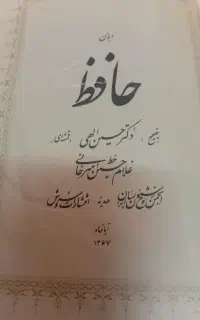 دیوان
حافظ
بتصحیح : دکتر حسین الهی قمشه‌ای
خط غلامحسین امیرخانی
انجمن خوشنویسان ایران هدیه انتشارات سروش
آبانماه
۱۳۶۷